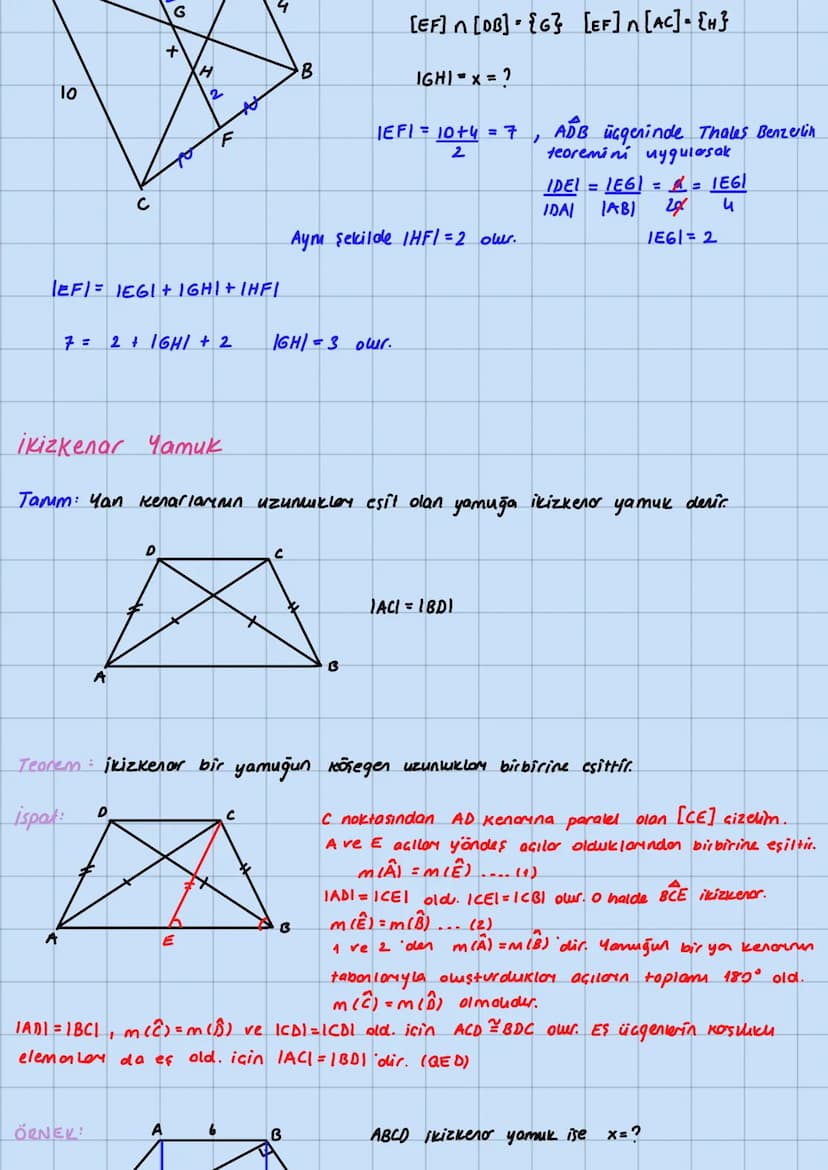 G
4
[EF] ∩ [DB] = {G} [EF] ∩ [AC] = {H}
+
H
B
10
2
|GH| = x = ?
F
C
|EF| = 10+4 / 2 = 7 , ADB üçgeninde Thales Benzerlik
teoremini uygularsak
|DE| / |DA| = |EG| / |AB| = a / 2a = |EG| / 4
Aynı şekilde |HF| = 2 olur.
|EG| = 2
|EF| = |EG| + |GH| + |HF|
7 = 2 + |GH| + 2 |GH| = 3 olur.
İkizkenar Yamuk
Tanım: Yan kenarlarının uzunlukları eşit olan yamuğa ikizkenar yamuk denir.
D
C
|AC| = |BD|
A
B
Teorem: İkizkenar bir yamuğun köşegen uzunlukları birbirine eşittir.
İspat:
D
C
A
E
B
C noktasından AD kenarına paralel olan [CE] çizelim.
A ve E açıları yöndeş açılar olduklarından birbirine eşittir.
m(Â) = m(Ê) .... (1)
|AD| = |CE| old. |CE| = |CB| olur. O halde BCE ikizkenar.
m(Ê) = m(B̂) ... (2)
1 ve 2'den m(Â) = m(B̂)'dir. Yamuğun bir yan kenarının
tabanlarıyla oluşturdukları açıların toplamı 180° old.
m(Ĉ) = m(D̂) olmalıdır.
|AD| = |BC| , m(Ĉ) = m(D̂) ve |CD| = |CD| old. için ACD ≅ BDC olur. Eş üçgenlerin karşılıklı
elemanları da eş old. için |AC| = |BD|'dir. (QED)
ÖRNEK:
A
6
B
ABCD ikizkenar yamuk ise x = ?